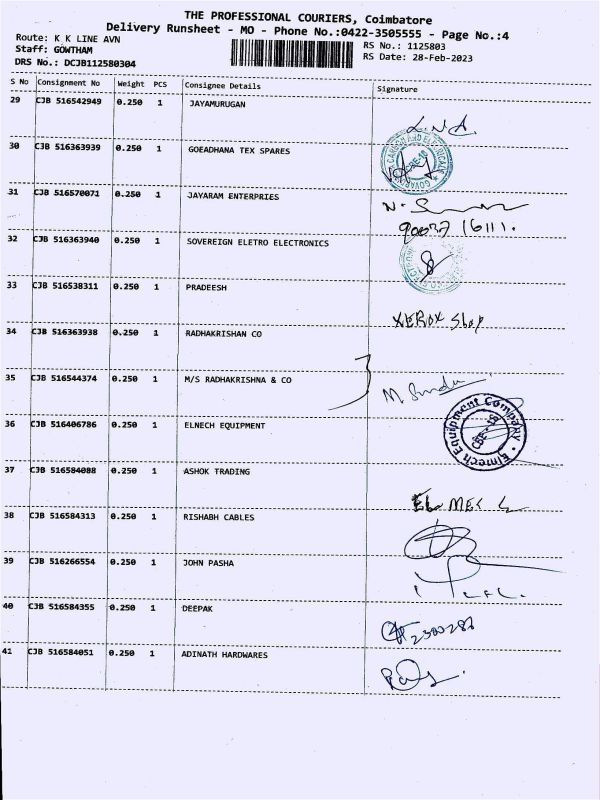 THE PROFESSIONAL COURIERS, Coimbatore
Delivery Runsheet - MO - Phone No.:0422-3505555 - Page No.:4
Route: K K LINE AVN
Staff: GOWTHAM
DRS No.: DCJB112580304
RS No.: 1125803
RS Date: 28-Feb-2023
S No Consignment No Weight PCS Consignee Details Signature
29 CJB 516542949 0.250 1 JAYAMURUGAN
30 CJB 516363939 0.250 1 GOEADHANA TEX SPARES
31 CJB 516570071 0.250 1 JAYARAM ENTERPRIES
90037 16111.
32 CJB 516363940 0.250 1 SOVEREIGN ELETRO ELECTRONICS
33 CJB 516538311 0.250 1 PRADEESH
XEROX Shop
34 CJB 516363938 0.250 1 RADHAKRISHAN CO
35 CJB 516544374 0.250 1 M/S RADHAKRISHNA & CO
36 CJB 516406786 0.250 1 ELNECH EQUIPMENT
Elmech Equipment Company
37 CJB 516584088 0.250 1 ASHOK TRADING
38 CJB 516584313 0.250 1 RISHABH CABLES
39 CJB 516266554 0.250 1 JOHN PASHA
40 CJB 516584355 0.250 1 DEEPAK
41 CJB 516584051 0.250 1 ADINATH HARDWARES